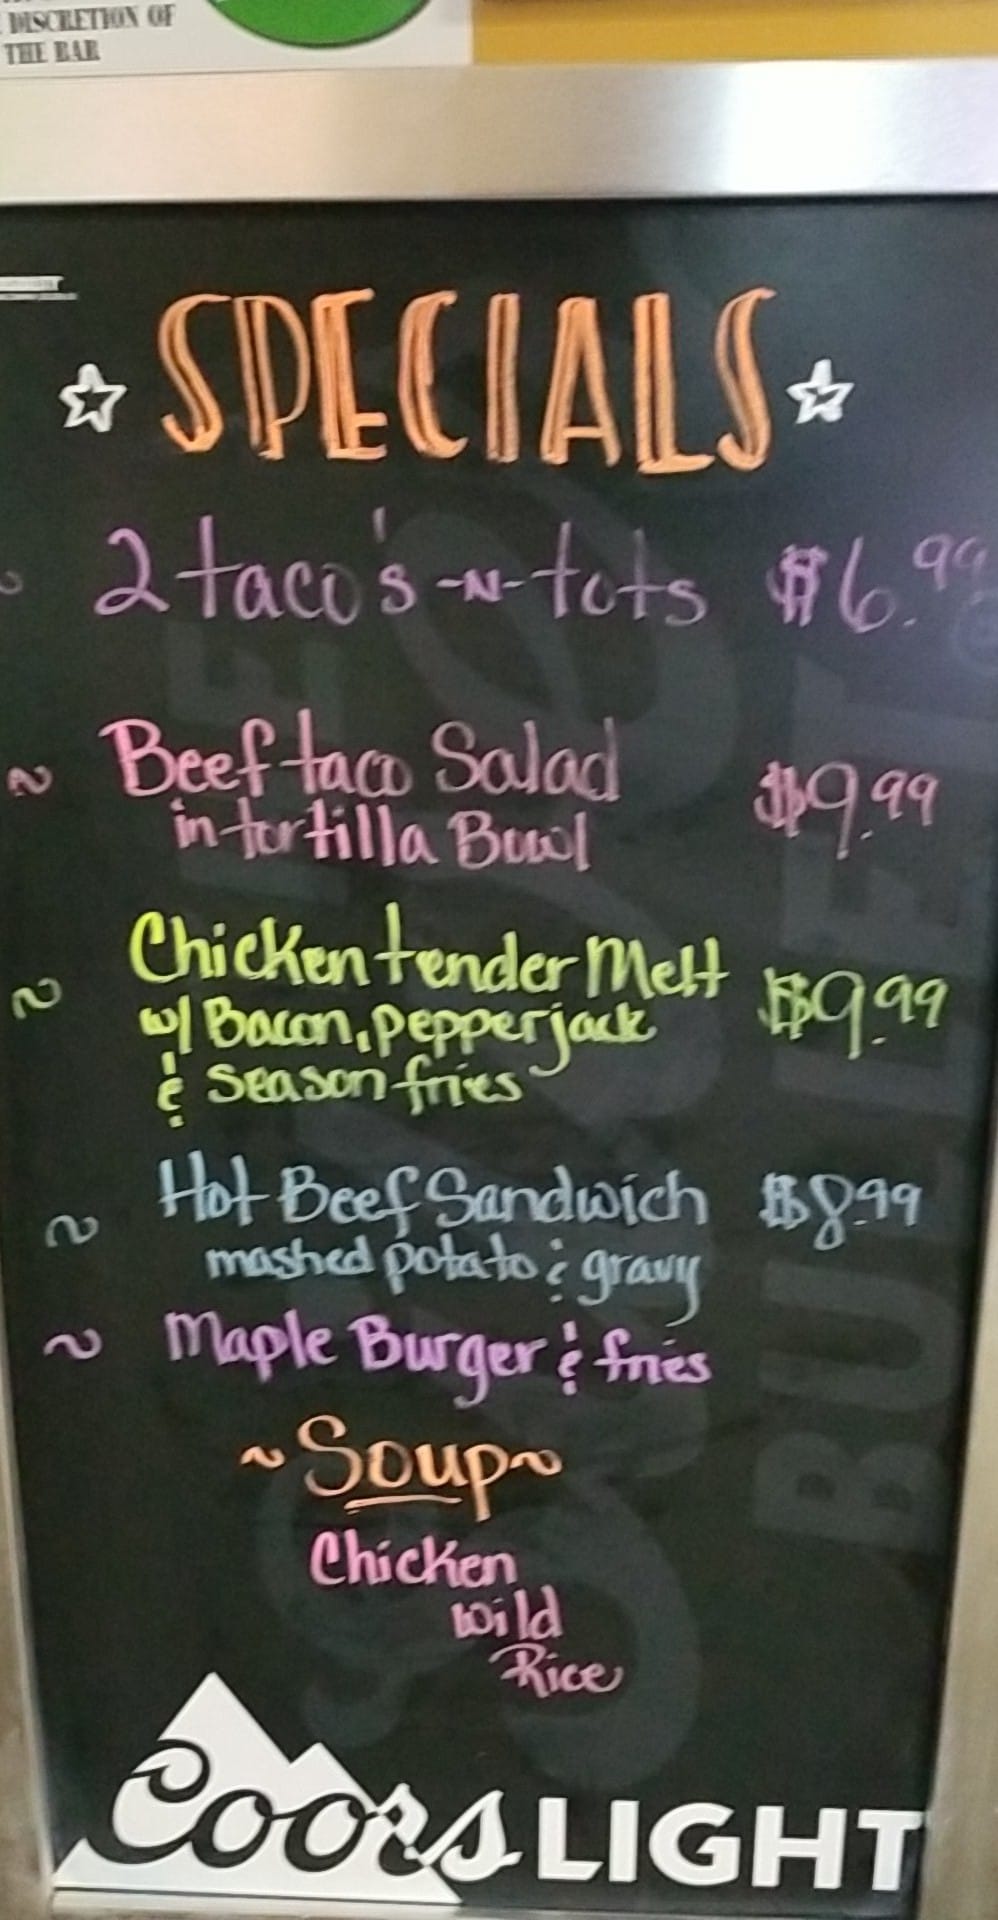 DISCRETION OF
THE BAR
SPECIALS
2 taco's -N- tots $6.99
~ Beef taco Salad $9.99
in tortilla Bowl
~ Chicken tender Melt $9.99
w/ Bacon, pepper jack
& season fries
~ Hot Beef Sandwich $8.99
mashed potato & gravy
~ Maple Burger & fries
~Soup~
Chicken
wild
Rice
Coors LIGHT